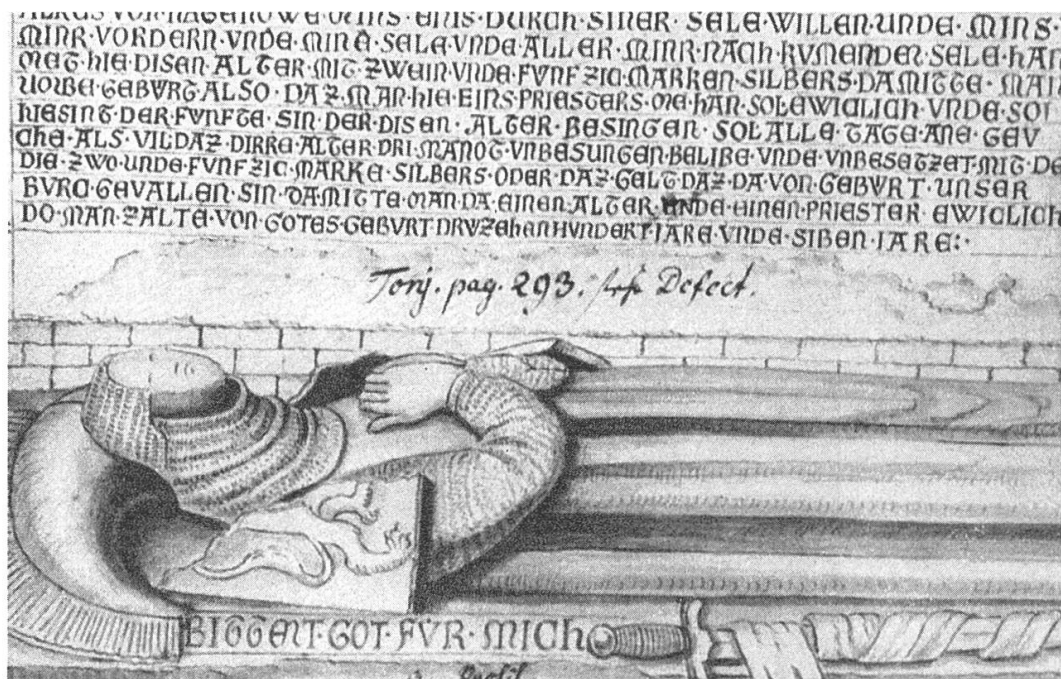 VON HAGENOWE
EINIS · DURCH · SINER · SELE · WILLEN · UNDE · MINS ·
MINR · VORDERN · VNDE · MINE · SELE · VNDE · ALLER · MINR · NACH · KVMENDEN · SELE · HAN
HIE · DISEN · ALTER · MIT · ZWEIN · VNDE · FVNFZIC · MARKEN · SILBERS · DAMITTE · MAN
GEBVRT · ALSO · DAZ · MAN · HIE · EINS · PRIESTERS · ME · HAN · SOL · EWICLICH · VNDE · SOL
HIE SINT · DER · FVNFTE · SIN · DER · DISEN · ALTER · BESINGEN · SOL ALLE · TAGE · ANE · GEV
CHE · ALS · VIL DAZ · DIRRE · ALTER · DRI · MANOT · VNBESUNGEN · BELIBE · VNDE · VNBESETZET · MIT · D
DIE · ZWO · UNDE · FVNFZIC · MARKE · SILBERS · ODER · DAZ · GELT · DAZ · DA VON · GEBVRT · UNSER
BVRC · GEVALLEN · SIN · DAMITTE · MAN · DA · EINEN · ALTER · UNDE · EINEN · PRIESTER EWICLICH
DO · MAN · ZALTE · VON · GOTES · GEBVRT · DRVZEHEN HVNDERT · IARE · VNDE · SIBEN · IARE :·
pag. 293. Defect.
BITTENT · GOT · FVR · MICH